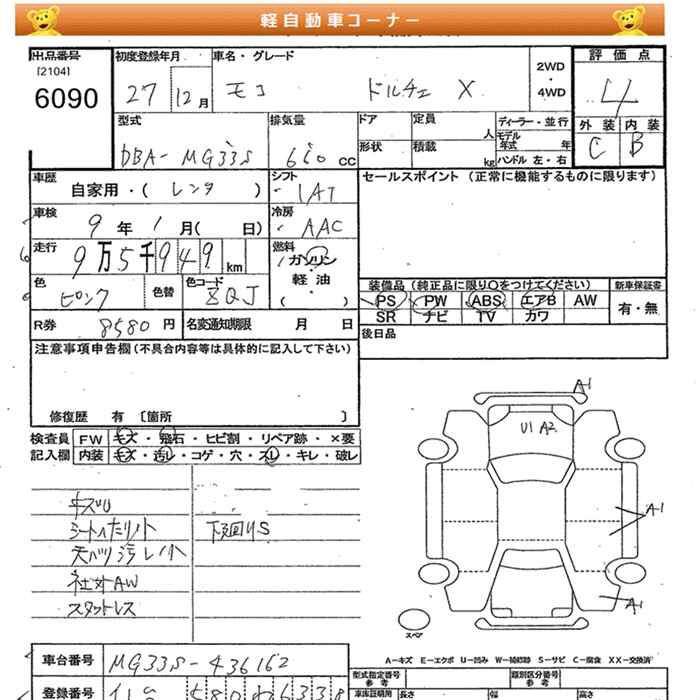 軽自動車コーナー
出品番号 初度登録年月 車名・グレード 評価点
[2104]
6090
27 12月 モコ ドルチェ X
2WD
・
4WD
4
型式 排気量 ドア 定員 人 ディーラー・並行 外装 内装
モデル年式 年
形状 積載 kg ハンドル 左・右
DBA-MG33S 660 cc C B
車歴 自家用・(レンタ) シフト IAT
セールスポイント (正常に機能するものに限ります)
車検 9年 1月( 日) 冷房 AAC
走行 9万5千949km 燃料 ガソリン・軽油・( )
色 ピンク 色替 色コード ZQJ
装備品 (純正品に限り○をつけてください) 新車保証書
PS PW ABS エアB AW 有・無
SR ナビ TV カワ
R券 8580円 名変通知期限 月 日 後日品
注意事項申告欄 (不具合内容等は具体的に記入して下さい)
修復歴 有 〔箇所 〕
検査員 FW キズ・飛石・ヒビ割・リペア跡・×要
記入欄 内装 キズ・汚レ・コゲ・穴・スレ・キレ・破レ
シートヘたり小 下廻りS
天バリ汚レ小
社外AW
スタットレス
A-1
U1 A2
A-1
A-1
スペア
A-キズ E-エクボ U-凹み W-補修跡 S-サビ C-腐食 XX-交換済
車台番号 MG33S-436162
型式指定番号 参考 類別区分番号 参考
登録番号
車庫証明用 長さ 幅 高さ